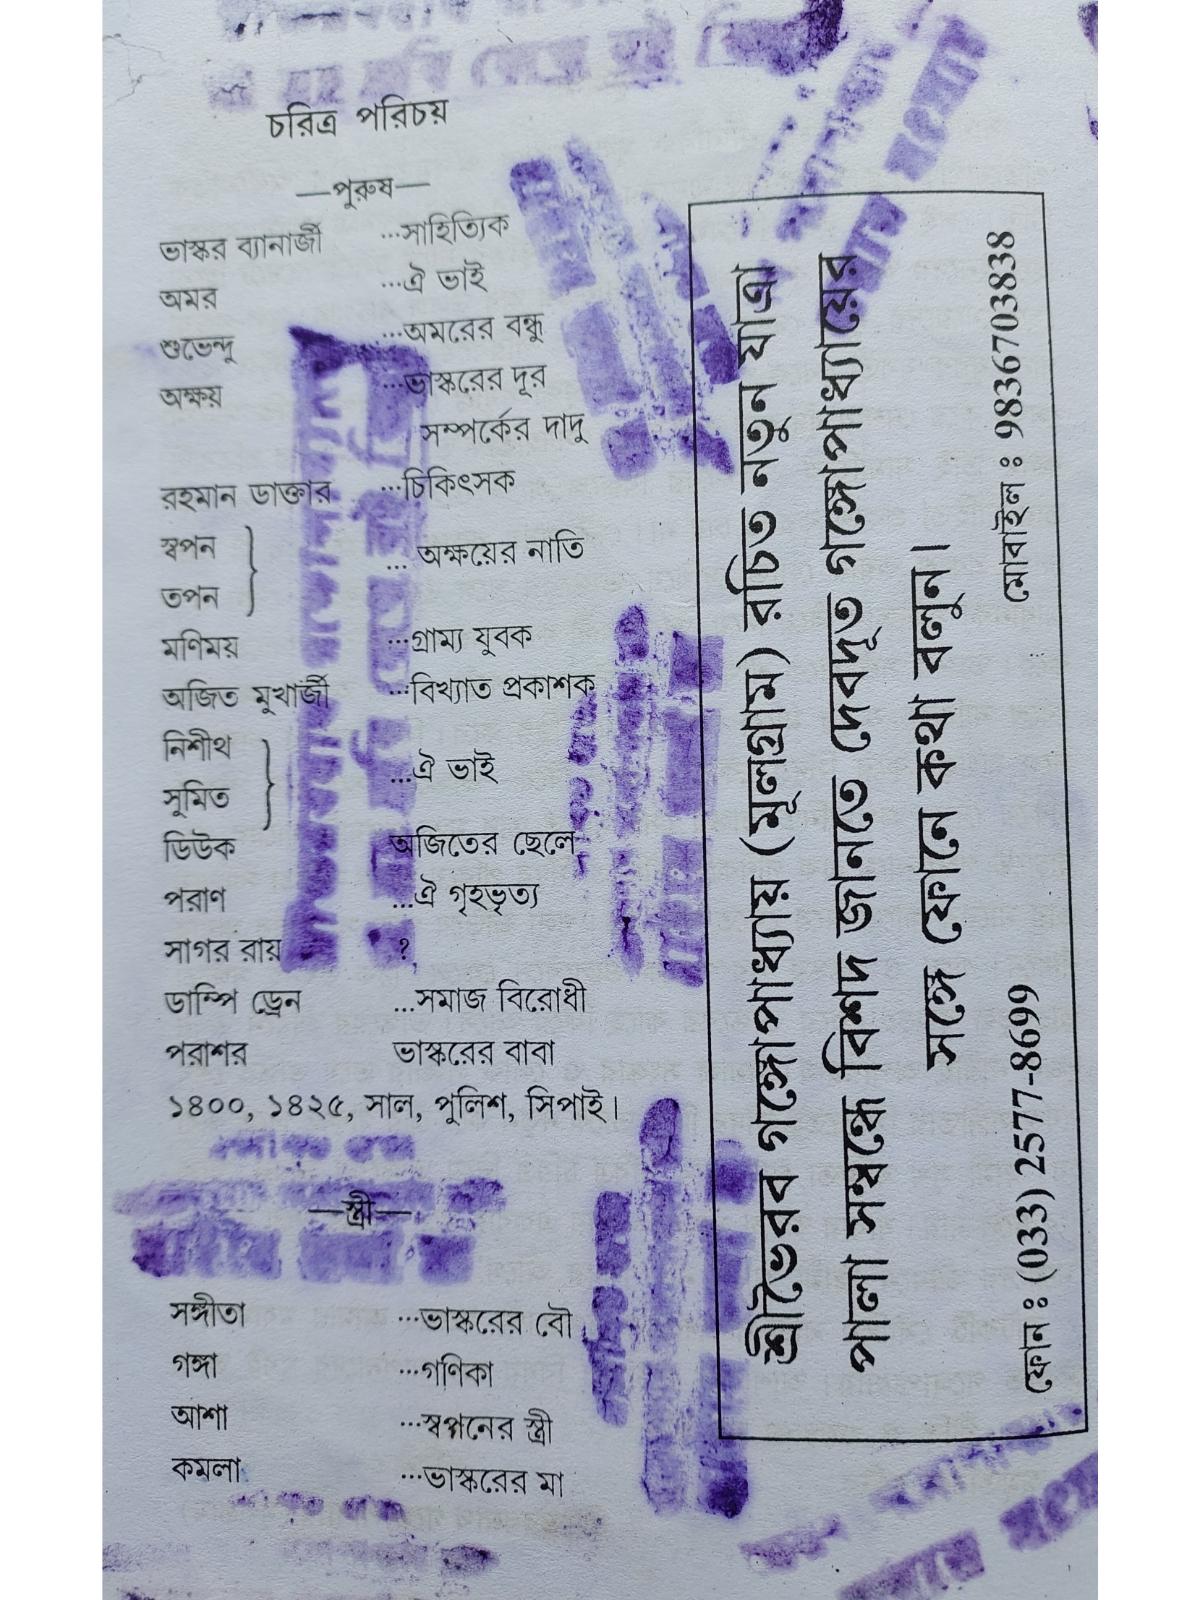 চরিত্র পরিচয়
—পুরুষ—
ভাস্কর ব্যানার্জী ...সাহিত্যিক
অমর ...ঐ ভাই
শুভেন্দু ...অমরের বন্ধু
অক্ষয় ...ভাস্করের দূর
সম্পর্কের দাদু
রহমান ডাক্তার ...চিকিৎসক
স্বপন
তপন } ... অক্ষয়ের নাতি
মণিময় ...গ্রাম্য যুবক
অজিত মুখার্জী ...বিখ্যাত প্রকাশক
নিশীথ
সুমিত } ...ঐ ভাই
ডিউক অজিতের ছেলে
পরাণ ...ঐ গৃহভৃত্য
সাগর রায় ?
ডাম্পি ড্রেন ...সমাজ বিরোধী
পরাশর ভাস্করের বাবা
১৪০০, ১৪২৫, সাল, পুলিশ, সিপাই।
—স্ত্রী—
সঙ্গীতা ...ভাস্করের বৌ
গঙ্গা ...গণিকা
আশা ...স্বপনের স্ত্রী
কমলা ...ভাস্করের মা
শ্রীভৈরব গঙ্গোপাধ্যায় (মূলগ্রাম) রচিত নতুন যাত্রা
পালা সম্বন্ধে বিশদ জানতে দেবদূত গঙ্গোপাধ্যায়ের
সঙ্গে ফোনে কথা বলুন।
ফোন : (033) 2577-8699 মোবাইল : 9836703838